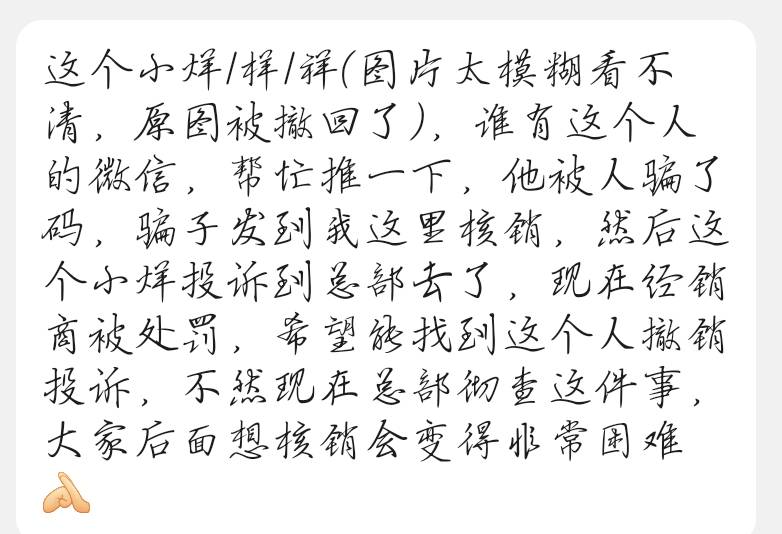 这个小烊/样/祥(图片太模糊看不
清，原图被撤回了)，谁有这个人
的微信，帮忙推一下，他被人骗了
码，骗子发到我这里核销，然后这
个小烊投诉到总部去了，现在经销
商被处罚，希望能找到这个人撤销
投诉，不然现在总部彻查这件事，
大家后面想核销会变得非常困难